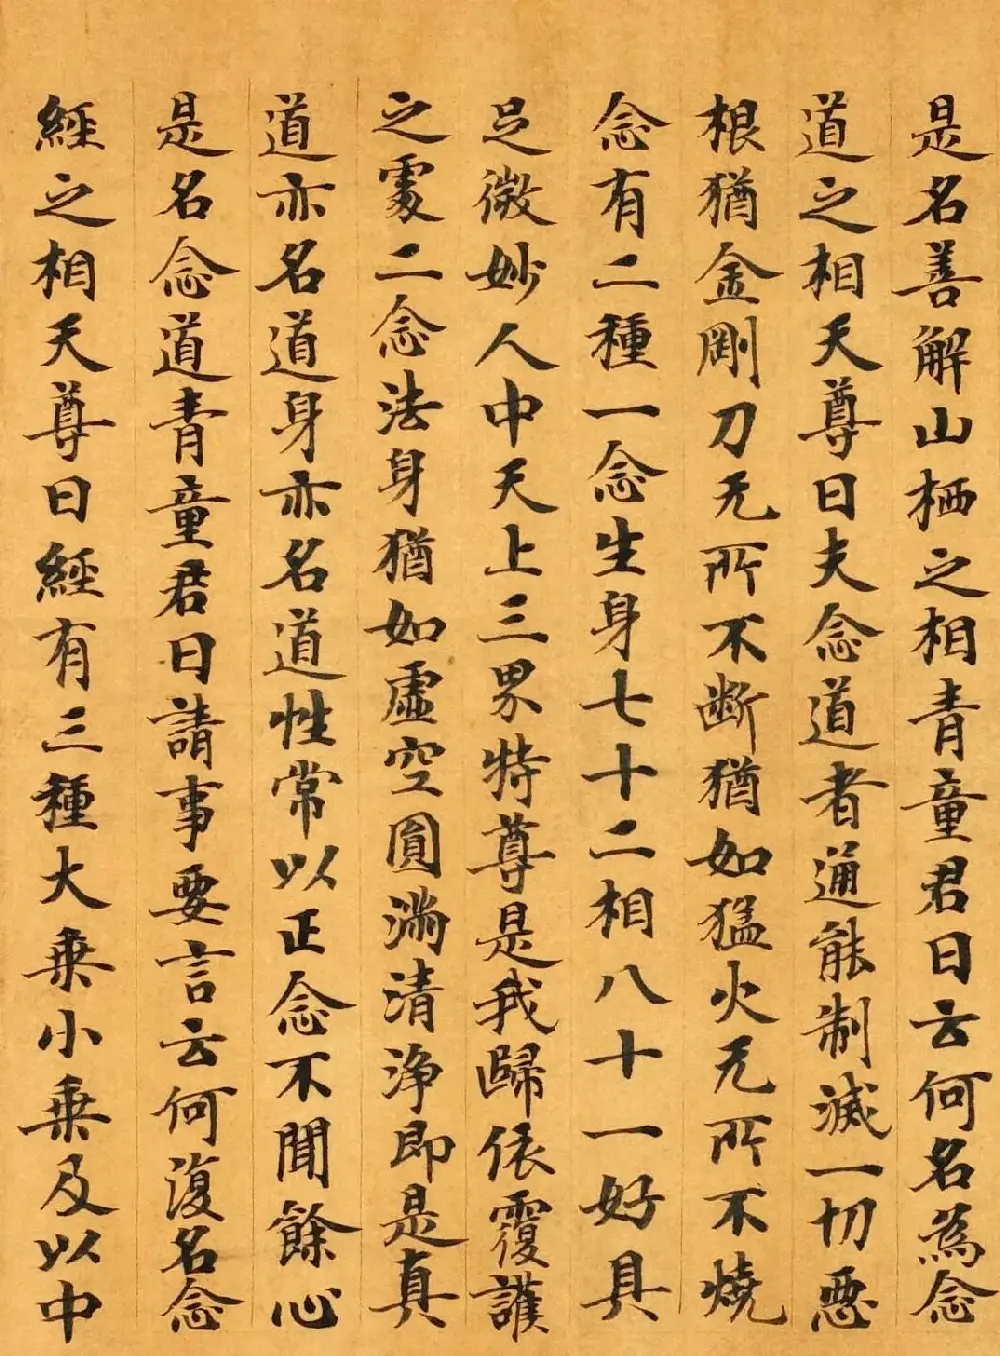 是名善解山栖之相青童君曰云何名為念
道之相天尊曰夫念道者通能制滅一切惡
根猶金剛刀无所不斷猶如猛火无所不燒
念有二種一念生身七十二相八十一好具
足微妙人中天上三界特尊是我歸依覆護
之處二念法身猶如虛空圓滿清淨即是真
道亦名道身亦名道性常以正念不聞餘心
是名念道青童君曰請事要言云何復名念
經之相天尊曰經有三種大乘小乘及以中